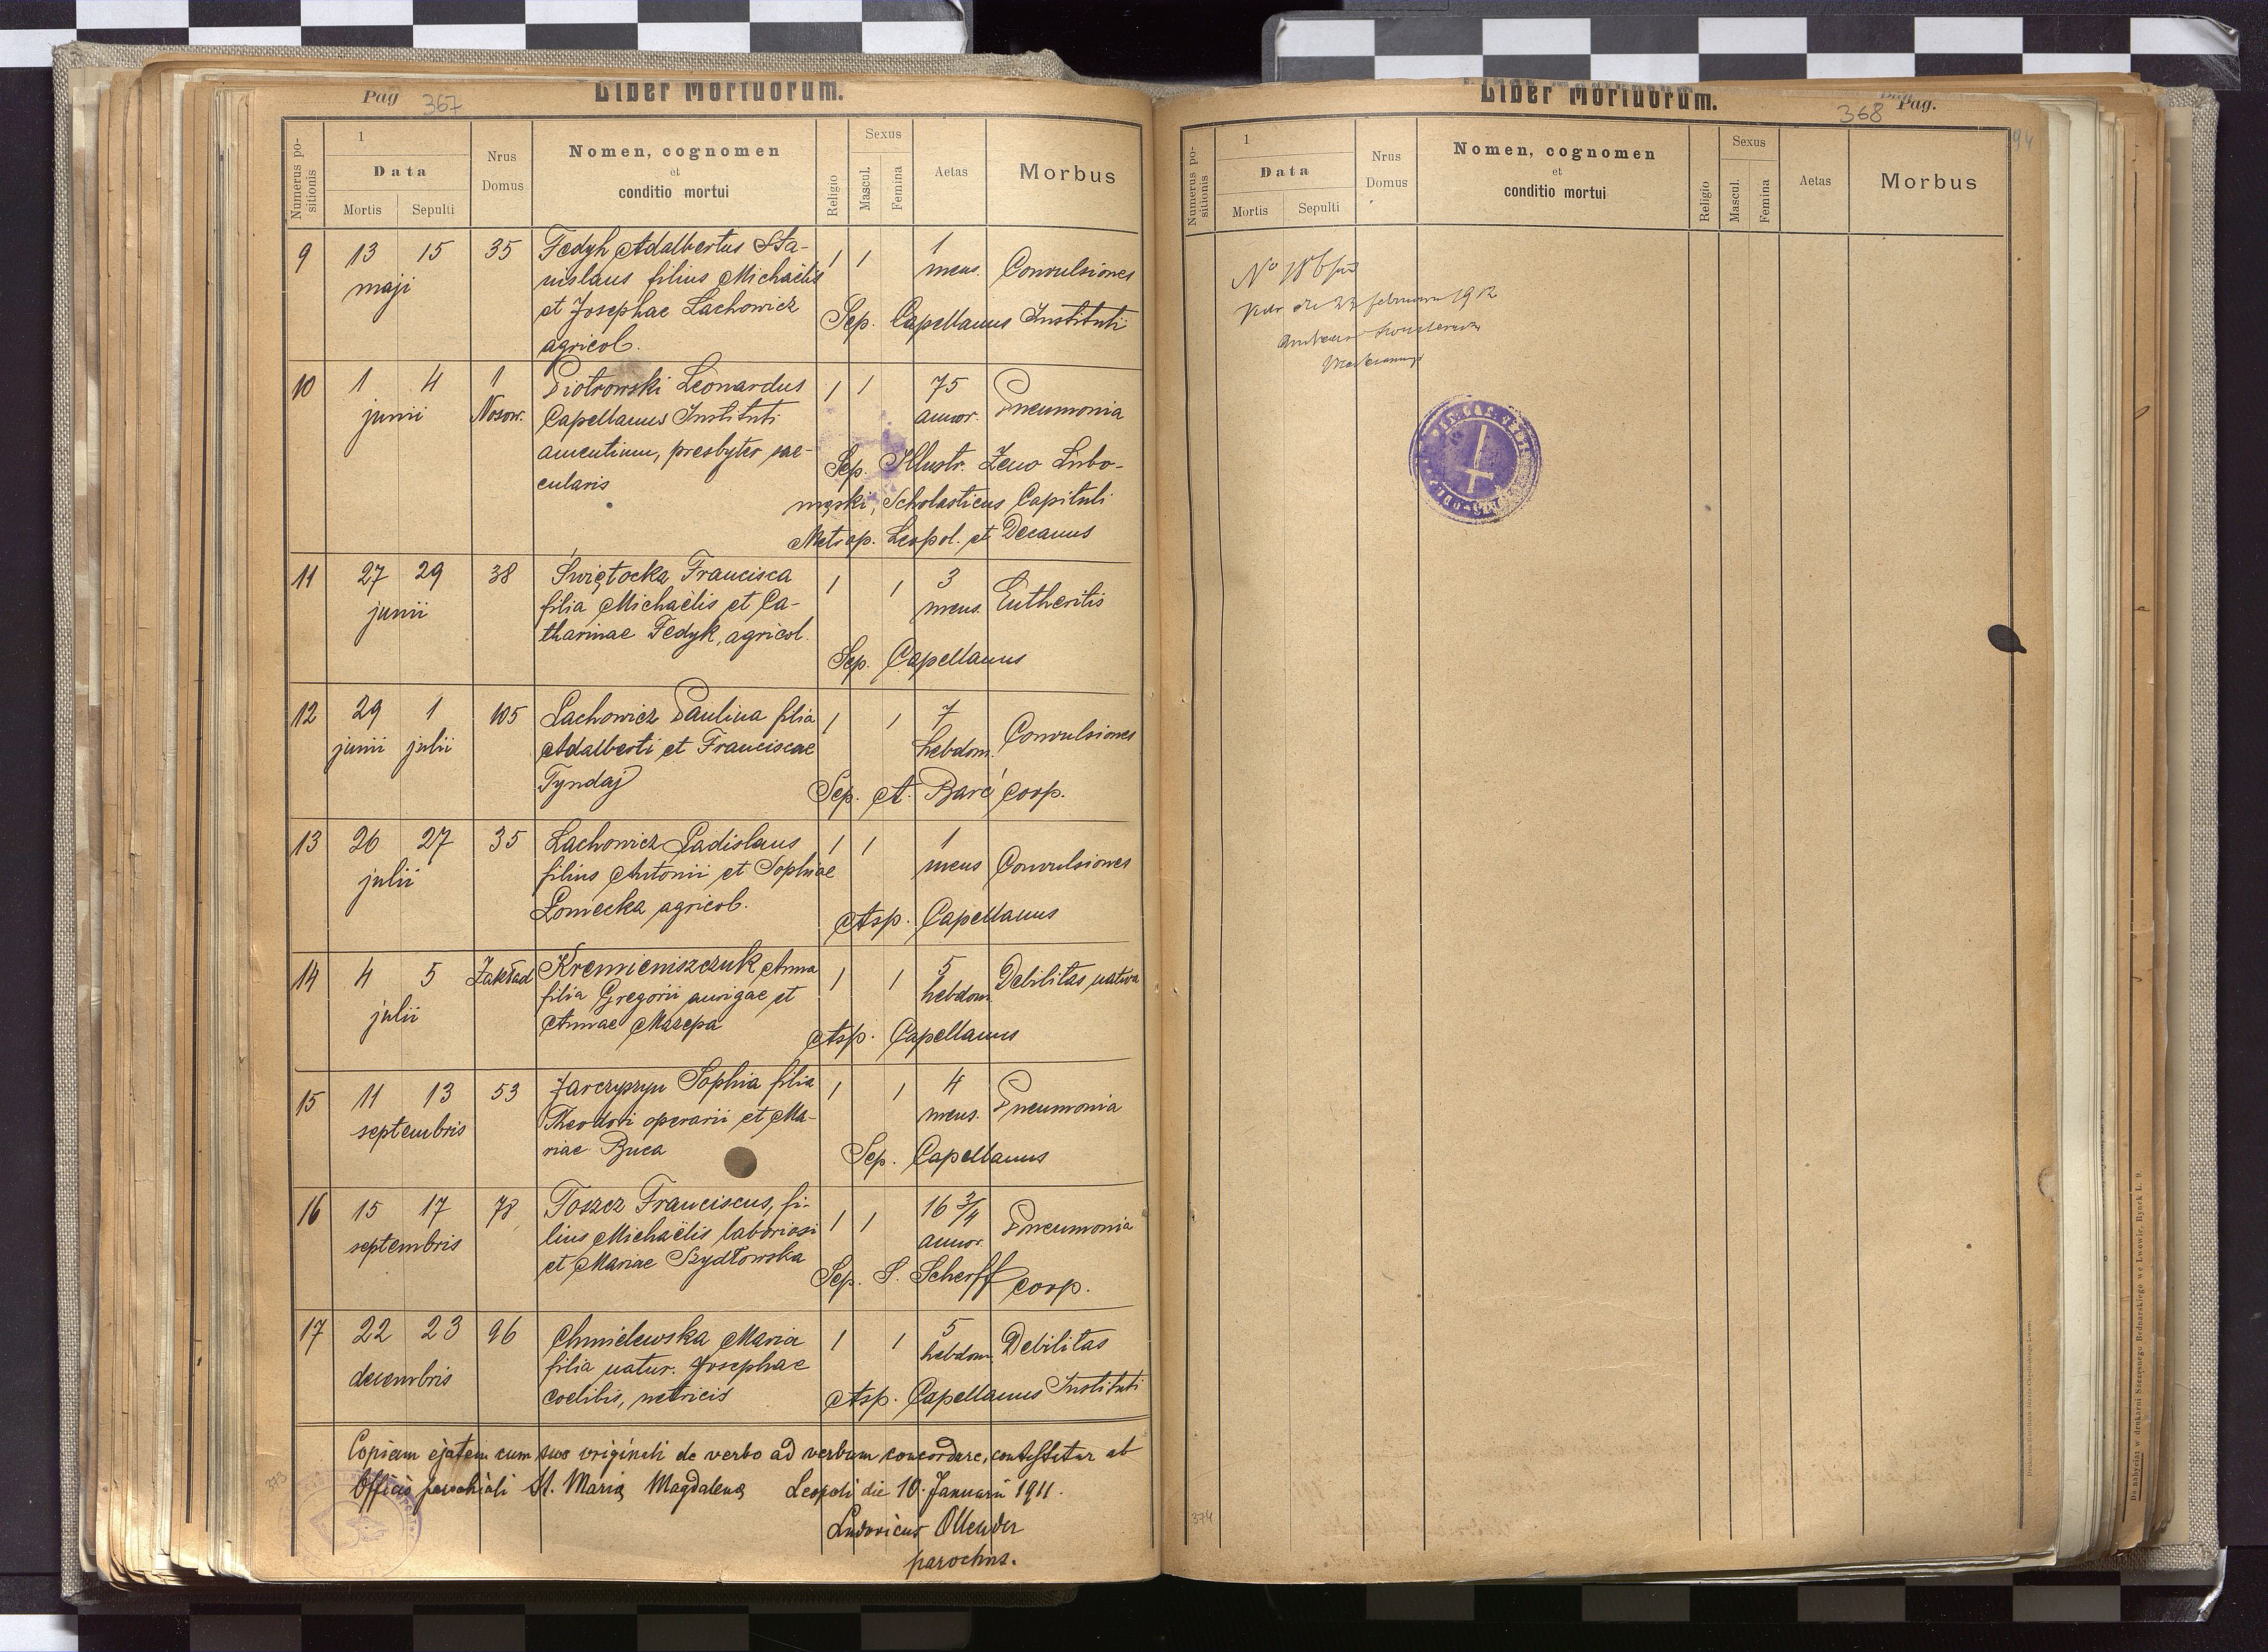 Pag 367 Liber Mortuorum.
Numerus positionis
1
Data
Mortis Sepulti
Nrus Domus
Nomen, cognomen
et
conditio mortui
Religio
Sexus
Mascul. Femina
Aetas
Morbus
9 13 15 35 Fedyk Adalbertus Sta- 1 1 1
maji nislaus filius Michaëlis mens. Convulsiones
et Josephae Lachowicz Sep. Capellanus Instituti
agricol.
10 1 4 1 Piotrowski Leonardus 1 1 75
junii Nosow. Capellanus Instituti annor. Pneumonia
amentium, presbyter sae- Sep. Illustr. Zeno Lubo-
cularis męski, Scholasticus Capituli
Metrop. Leopol. et Decanus
11 27 29 38 Świętocka Francisca 1 1 3
junii filia Michaëlis et Ca- mens. Entheritis
tharinae Fedyk, agricol.
Sep. Capellanus
12 29 1 105 Lachowicz Paulina filia 1 1 7
junii julii Adalberti et Franciscae hebdom. Convulsiones
Tyndaj Sep. A. Barć coop.
13 26 27 35 Lachowicz Ladislaus 1 1 1
julii filius Antonii et Sophiae mens Convulsiones
Łomecka agricol. Asp. Capellanus
14 4 5 Zakład Kremieniszczuk Anna 1 1 5 Debilitas nativa
julii filia Gregorii aurigae et hebdom.
Annae Mazepa Asp. Capellanus
15 11 13 53 Jarczyszyn Sophia filia 1 1 4
septembris Theodori operarii et Ma- mens. Pneumonia
riae Buca Sep. Capellanus
16 15 17 78 Toszcz Franciscus, fi- 1 1 16 3/4
septembris lius Michaëlis laboriosi annor. Pneumonia
et Mariae Szydłowska Sep. S. Scherff coop.
17 22 23 96 Chmielewska Maria 1 1 5
decembris filia natur. Josephae hebdom. Debilitas
coelibis, netricis Asp. Capellanus Instituti
Copiam ejatem cum suo originali de verbo ad verbum concordare, contestatur ab
Officio parochiali St. Marię Magdalenę Leopoli die 10. Januarii 1911.
Ludovicus Ollender
parochus.
373
Liber Mortuorum. 368 Pag.
94
Numerus positionis
1
Data
Mortis Sepulti
Nrus Domus
Nomen, cognomen
et
conditio mortui
Religio
Sexus
Mascul. Femina
Aetas
Morbus
No
februarii 1912
374
Do nabycia w drukarni Szczęsnego Bednarskiego we Lwowie, Rynek L. 9.